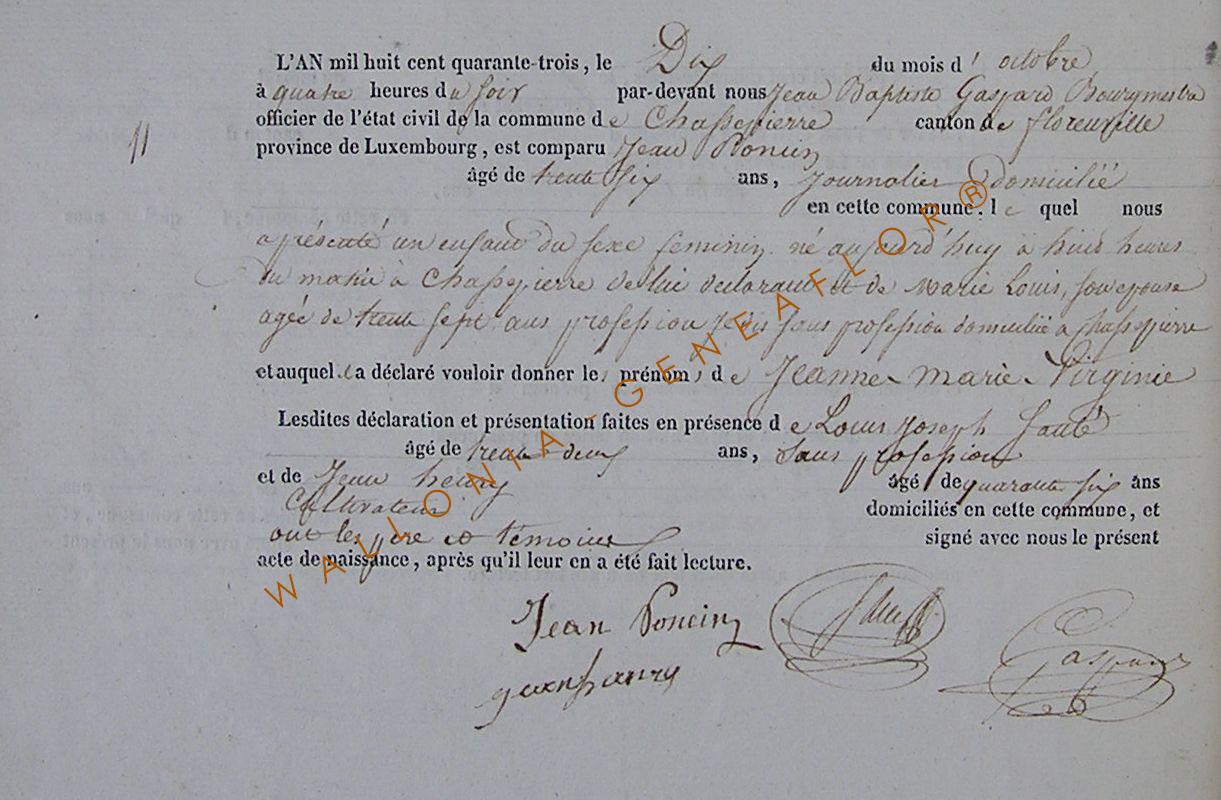 L'AN mil huit cent quarante-trois, le Dix du mois d' octobre
à quatre heures du soir par-devant nous Jean Baptiste Gaspard Bourgmestre
officier de l'état civil de la commune de Chassepierre canton de florenville
province de Luxembourg, est comparu Jean Poncin
âgé de trente six ans, journalier domicilié
en cette commune, lequel nous
11
a présenté un enfant du sexe feminin né aujourd'huy à huit heures
du matin à Chassepierre de lui déclarant et de Marie Louis, son epouse
agée de trente sept ans profession sans profession domiciliée a chassepierre
et auquel il a déclaré vouloir donner les prénoms de Jeanne Marie Virginie
Lesdites déclaration et présentation faites en présence de Louis Joseph
âgé de trente deux ans, sans profession
et de Jean henry âgé de quarante six ans
Cultivateur domiciliés en cette commune, et
ont les père et témoins signé avec nous le présent
acte de naissance, après qu'il leur en a été fait lecture.
Jean Poncin
Gaspard
WALLONIA-GENEAFLOR®